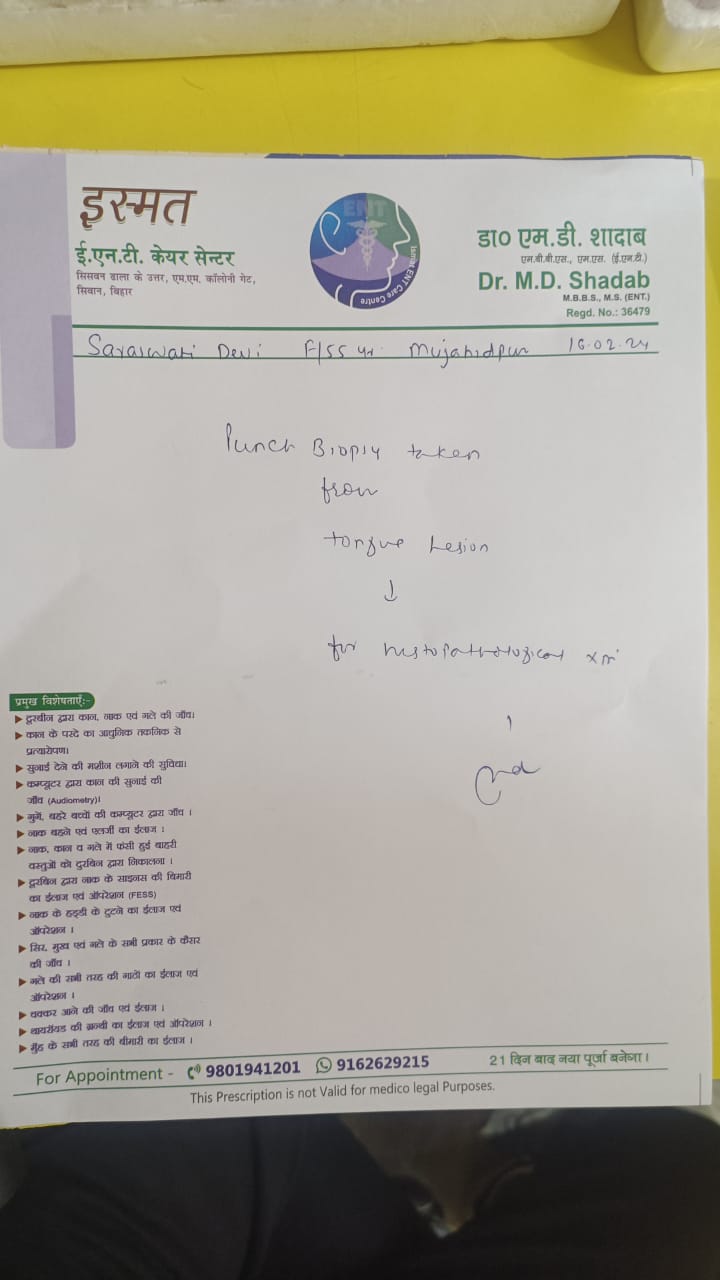 इस्मत
ई.एन.टी. केयर सेन्टर
सिसवन ढाला के उत्तर, एम.एम. कॉलोनी गेट,
सिवान, बिहार
ENT
Ismat ENT Care Centre
डा० एम.डी. शादाब
एम.बी.बी.एस., एम.एस. (ई.एन.टी.)
Dr. M.D. Shadab
M.B.B.S., M.S. (ENT.)
Regd. No.: 36479
Saraswati Devi F/55 yr. Mujahidpur 16.02.24
Punch Biopsy taken
from
tongue Lesion
↓
for histopathological
प्रमुख विशेषताएँ:-
दूरबीन द्वारा कान, नाक एवं गले की जाँच।
कान के परदे का आधुनिक तकनिक से
प्रत्यारोपण।
सुनाई देने की मशीन लगाने की सुविधा।
कम्प्यूटर द्वारा कान की सुनाई की
जाँच (Audiometry)।
गुगें, बहरे बच्चों की कम्प्यूटर द्वारा जाँच ।
नाक बहने एवं एलर्जी का ईलाज ।
नाक, कान व गले में फंसी हुई बाहरी
वस्तुओं को दुरबिन द्वारा निकालना ।
दूरबिन द्वारा नाक के साइनस की बिमारी
का ईलाज एवं ऑपरेशन (FESS)
नाक के हड्डी के टुटने का ईलाज एवं
ऑपरेशन ।
सिर, मुख एवं गले के सभी प्रकार के कैंसर
की जाँच ।
गले की सभी तरह की गाठो का ईलाज एवं
ऑपरेशन ।
चक्कर आने की जाँच एवं ईलाज ।
थायरॉयड की ग्रन्थी का ईलाज एवं ऑपरेशन ।
मुँह के सभी तरह की बीमारी का ईलाज ।
For Appointment - 9801941201 9162629215 21 दिन बाद नया पूर्जा बनेगा।
This Prescription is not Valid for medico legal Purposes.